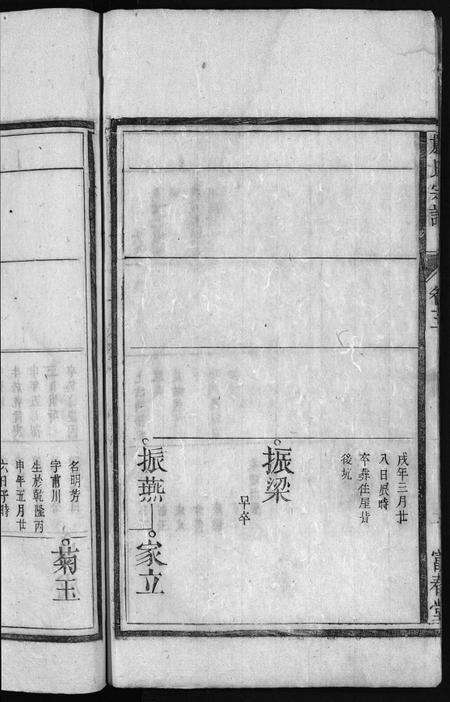 宗譜
卷三
富春堂
戌年三月廿
八日辰時
卒葬住屋背
後坑
振梁
早卒
振燕
家立
名明芳
字甫川
生於乾隆丙
申年五月廿
六日子時
菊玉